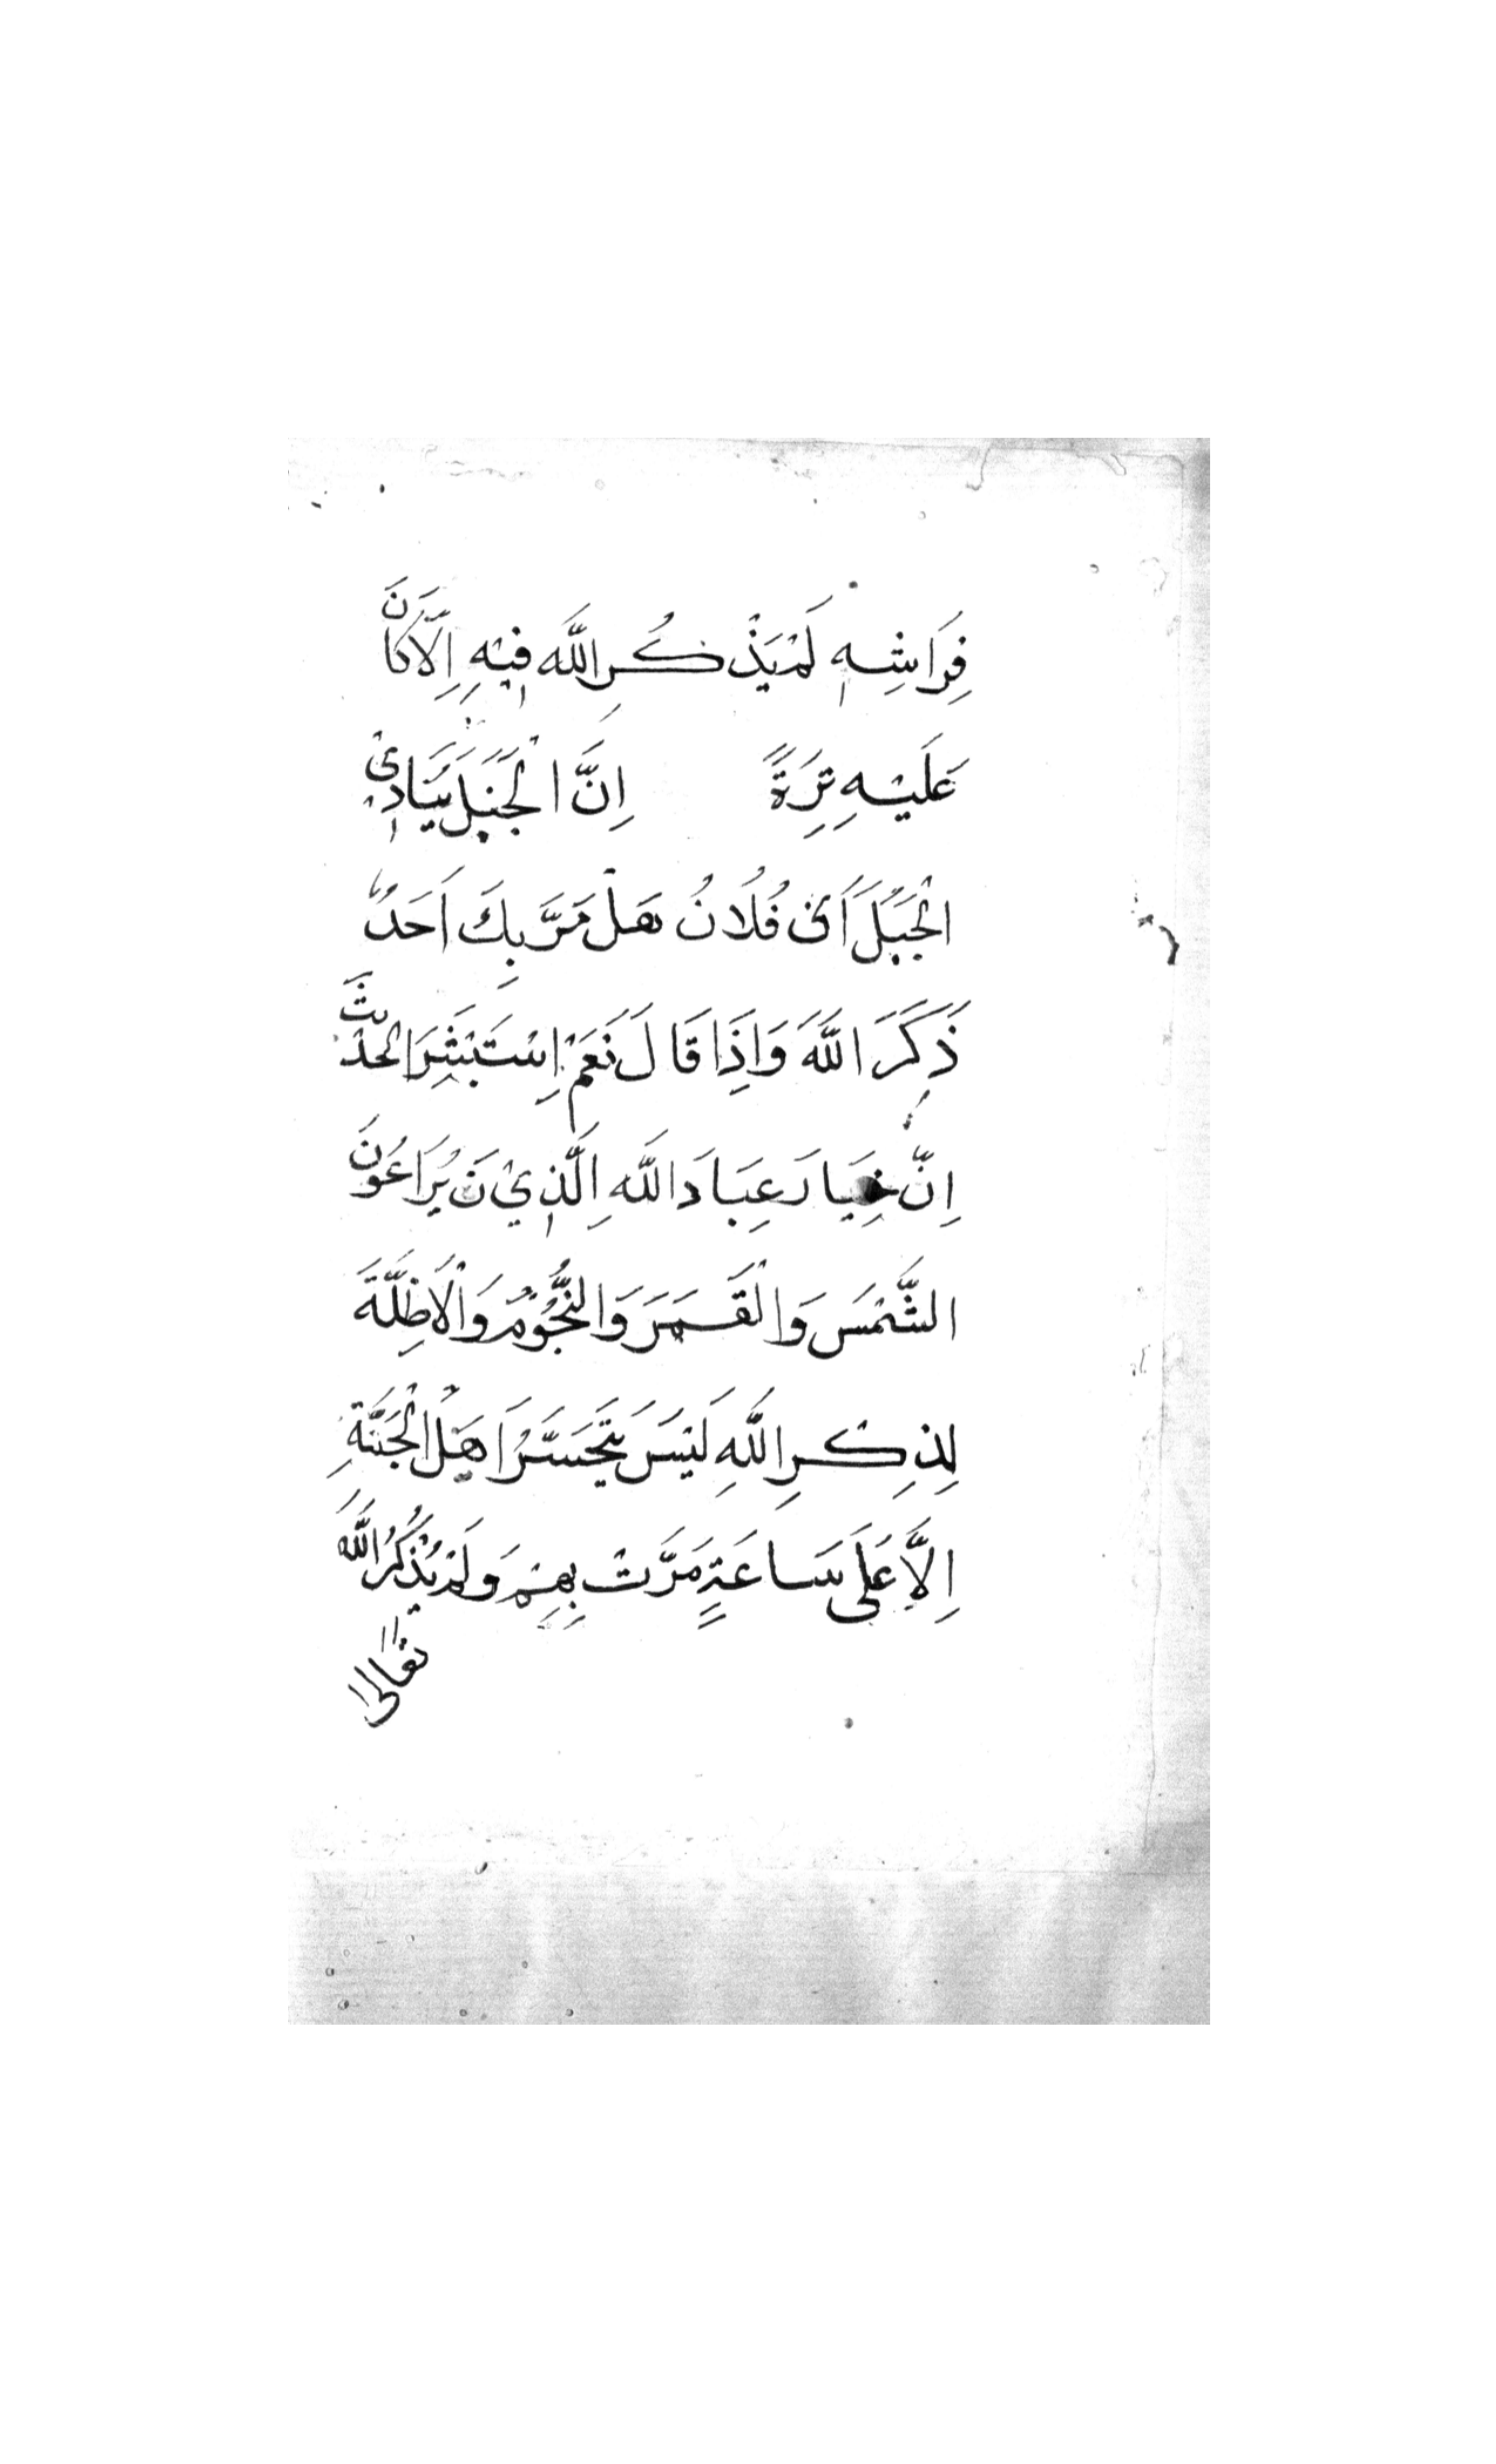 فِرَاشِهٖ لَمْ يَذْكُرِ اللَّهَ فِيْهِ اِلَّا كَانَ
عَلَيْهِ تِرَةً اِنَّ الْجَبَلَ يُنَادِيْ
الْجَبَلَ اَىْ فُلَانُ هَلْ مَرَّ بِكَ اَحَدٌ
ذَكَرَ اللَّهَ وَاِذَا قَالَ نَعَمْ اِسْتَبْشِرَ الحديث
اِنَّ خِيَارَ عِبَادَ اللَّهِ الَّذِيْنَ يُرَاعُوْنَ
الشَّمْسَ وَالْقَمَرَ وَالنُّجُوْمُ وَالْاَظِلَّةَ
لِذِكْرِ اللَّهِ لَيْسَ يَتَحَسَّرُ اَهْلُ الْجَنَّةِ
اِلَّا عَلَى سَاعَةٍ مَرَّتْ بِهِمْ وَلَمْ يَذْكُرُ اللَّهَ
تعالى